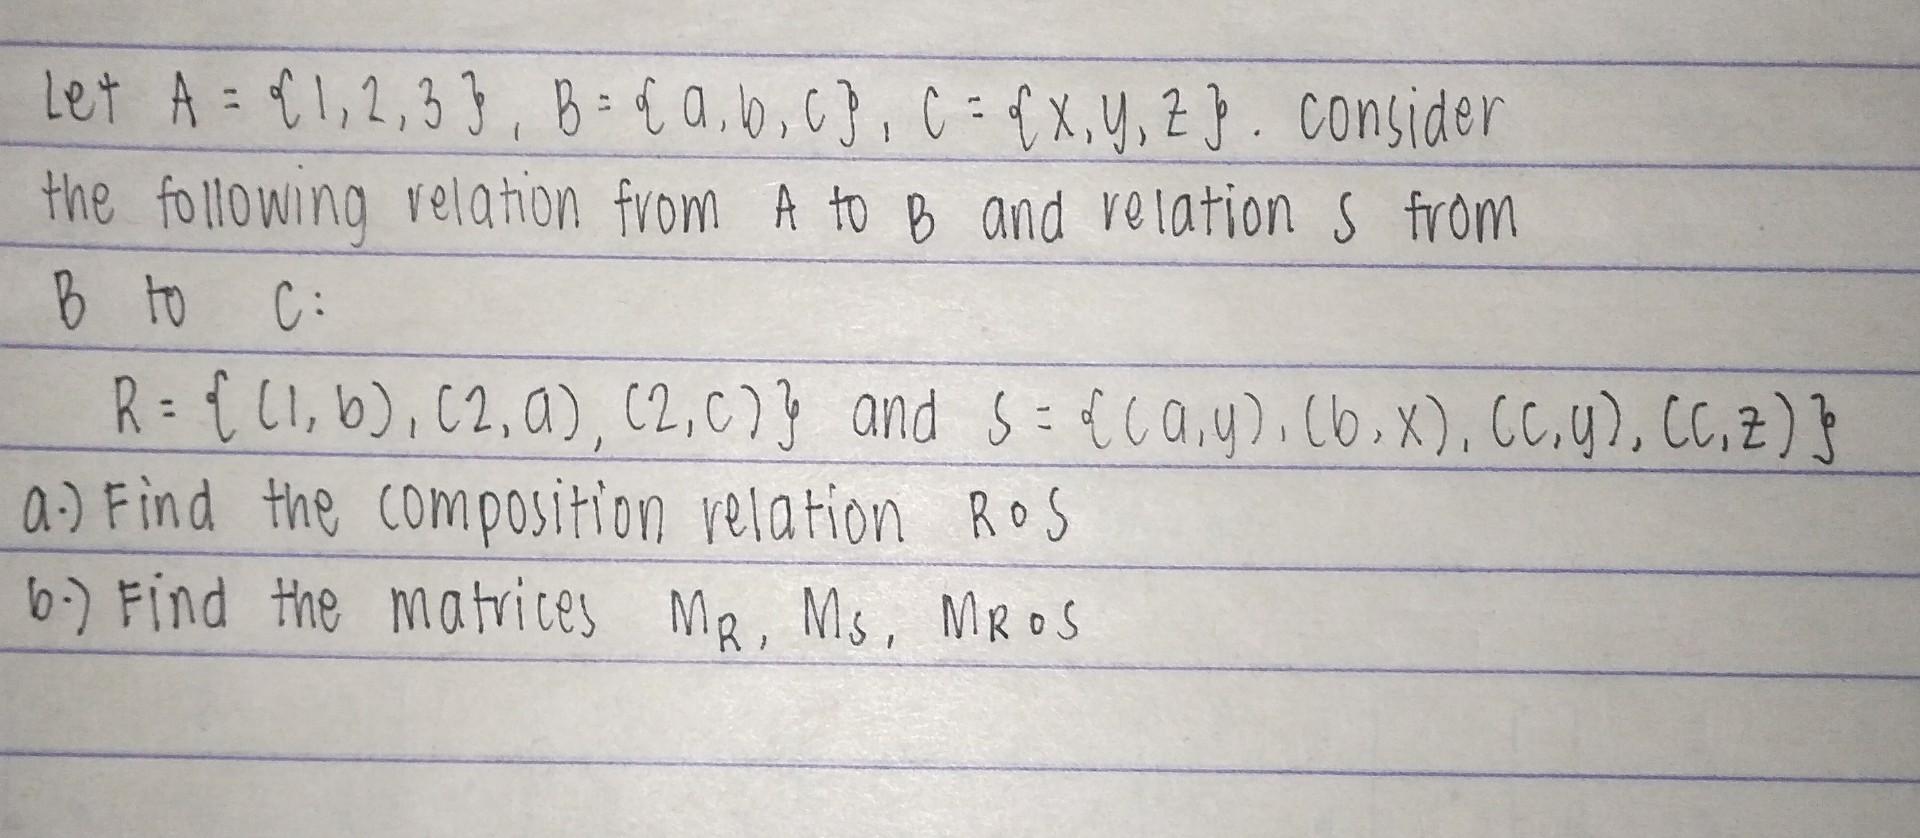 Let A = {1, 2, 3}, B = {a, b, c}, C = {x, y, z}. consider
the following relation from A to B and relation S from
B to C:
R = {(1, b), (2, a), (2, c)} and S = {(a, y), (b, x), (c, y), (c, z)}
a.) Find the composition relation R o S
b.) Find the matrices MR, MS, MR o S